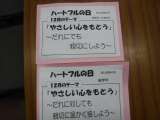 ハートフルの日
12月のテーマ
「やさしい心をもとう」
～だれにでも
親切にしよう～
ハートフルの日
12月のテーマ
「やさしい心をもとう」
～だれに対しても
親切に温かく接しよう～